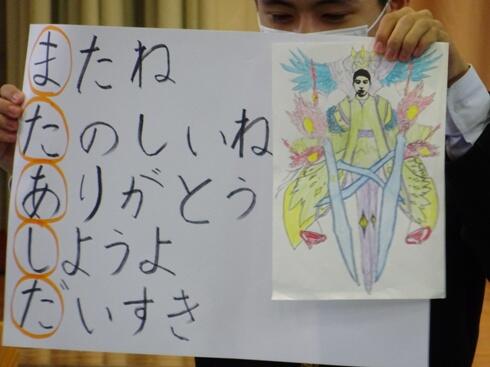 またね
たのしいね
ありがとう
しようよ
だいすき